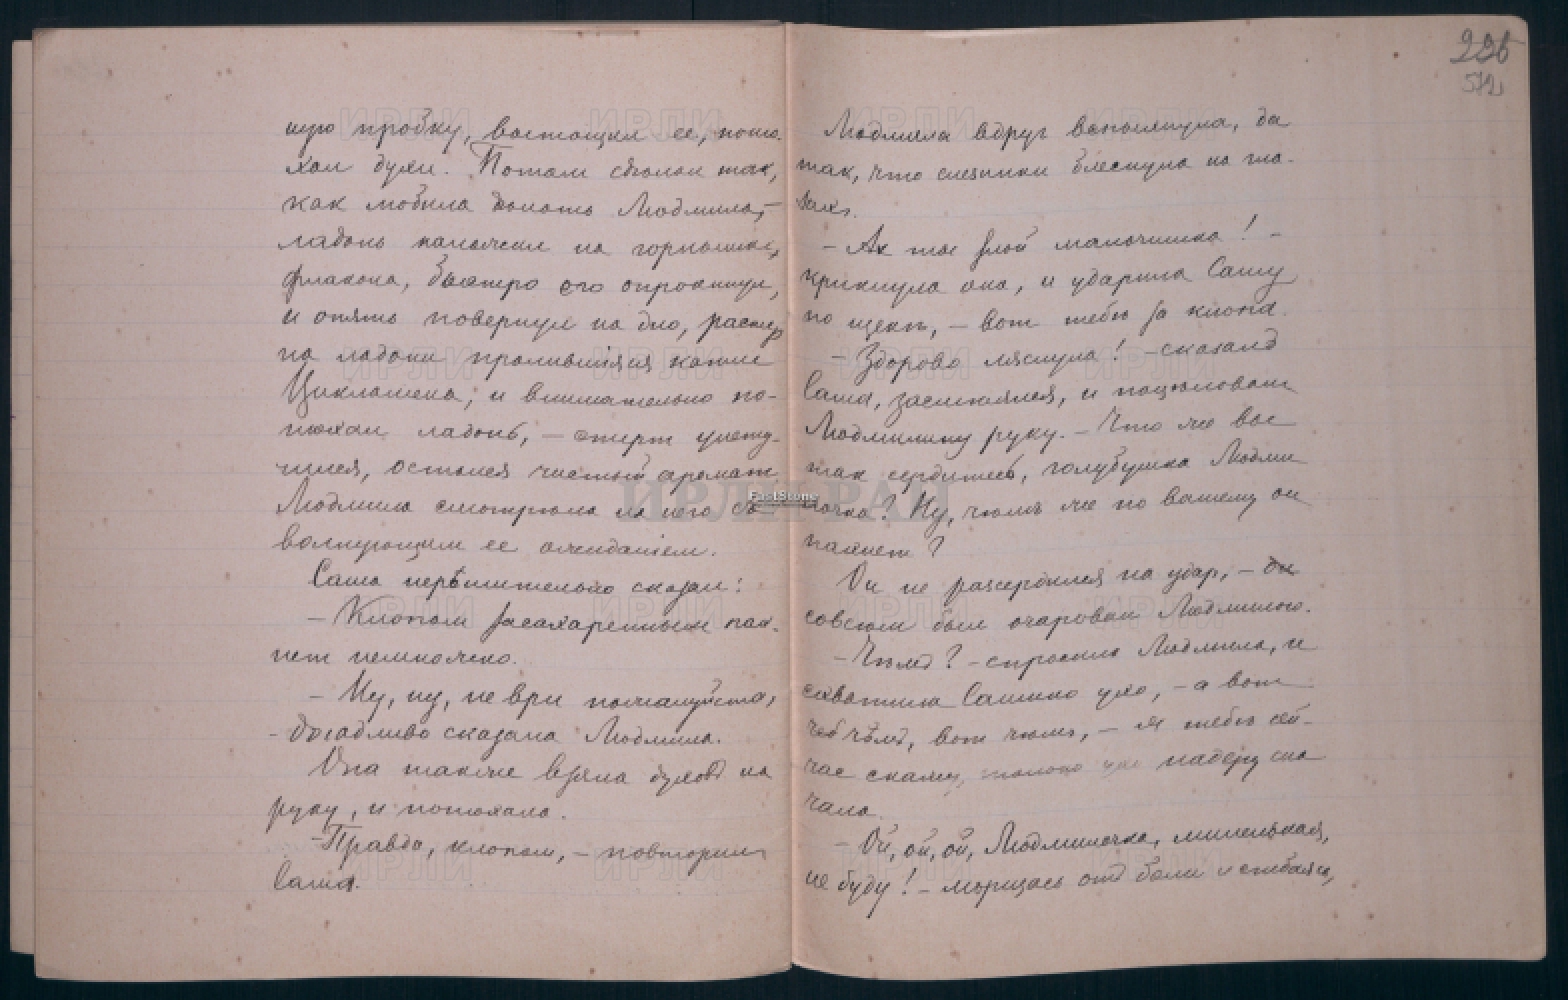 ную пробку, вытащил ее, поню-
хал духи. Потом сделал так,
как любила делать Людмила, –
ладонь наложил на горлышко
флакона, быстро его опрокинул,
и опять повернул на дно, растер
на ладони пролившіяся капли
Цикламена, и внимательно по-
нюхал ладонь, – спирт улету-
чился, остался чистый аромат
Людмила смотрѣла на него съ
волнующим ее ожиданіем.
Саша нерѣшительно сказал:
– Клопом засахаренным пах-
нет немножко.
– Ну, ну, не ври пожалуйста,
– досадливо сказала Людмила.
Она также взяла духовъ на
руку, и понюхала.
– Правда, клопом, – повторил
Саша.
226
572
Людмила вдруг вспыхнула, да
так, что слезинки блеснули на гла-
захъ.
– Ах ты злой мальчишка! –
крикнула она, и ударила Сашу
по щекѣ, – вот тебѣ за клопа.
– Здорово ляснула! – сказалъ
Саша, засмѣялся, и поцѣловал
Людмилину руку. – Что же вы
так сердитесь, голубушка Людми
лочка? Ну, чѣмъ же по вашему он
пахнет?
Он не разсердился на удар, –
совсѣм был очарован Людмилою.
– Чѣмъ? – спросила Людмила, и
схватила Сашино ухо, – а вот
чѣмъ, вот чѣмъ, – я тебѣ сей-
час скажу, только ухо надеру сна
чала.
– Ой, ой, ой, Людмилочка, миленькая,
не буду! – морщась отъ боли и сгибаясь,
ИРЛИ
ИРЛИ РАН
FastStone